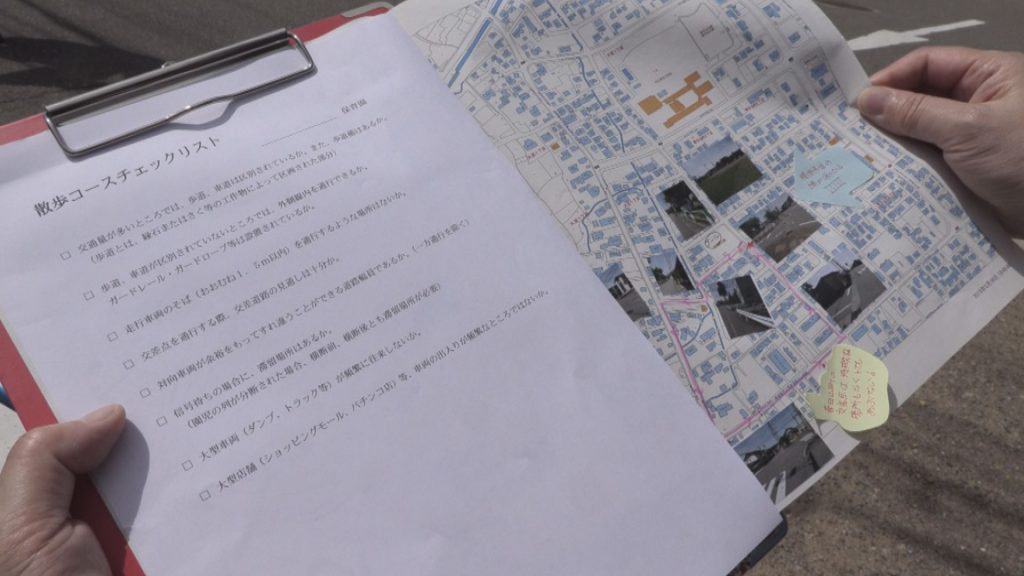 散歩コースチェックリスト
保育園
□ 交通量が多いところでは、歩道、車道は区別されているか。また、歩道幅はあるか。
(歩道とは、縁石またはさく等の工作物によって区画された部分)
□ 歩道、車道が区別されていないところでは、外側線内を通行できるか。
ガードレール・ガードロープ等は設置されているか。
□ 走行車両のそば(おおむね1.5m以内)を通行するような場所はないか。
□ 交差点を通行する際、交差道路の見通しは十分か。
□ 対向車両が余裕をもってすれ違うことができる道路幅員であるか。(一方通行を除く)
□ 信号待ちの場合に、滞留場所はあるか。
(園児の列が分断された場合、横断前、横断後とも滞留場所が必要)
□ 大型車両(ダンプ、トラック等)が頻繁に往来しないか。
□ 大型店舗(ショッピングモール、パチンコ店)等、車両の出入りが頻繁なところではないか。